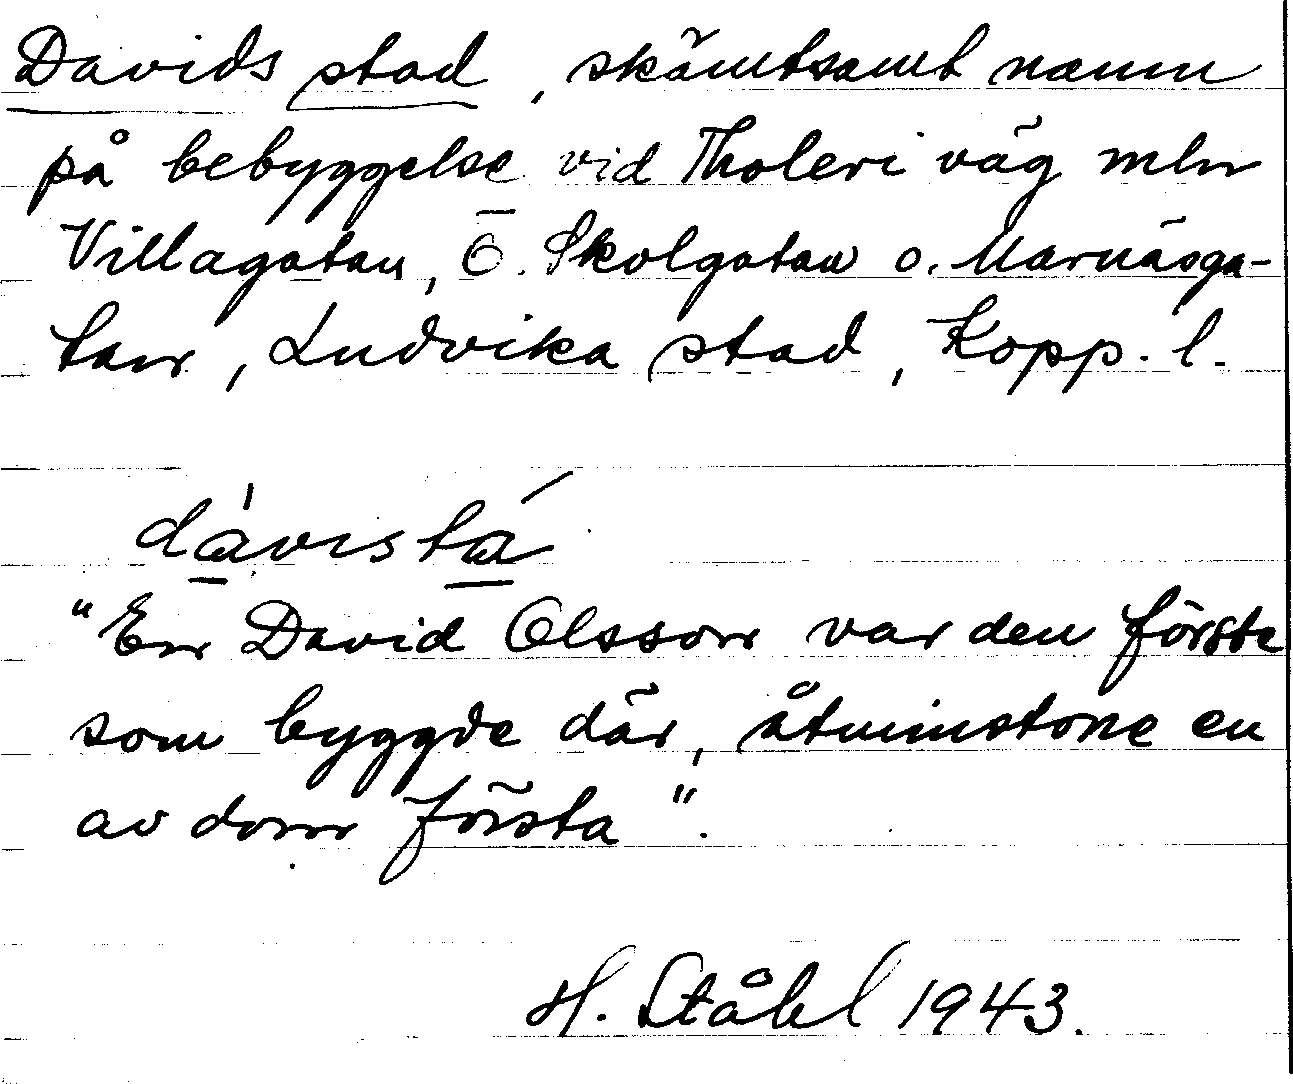 Davids stad, skämtsamt namn
på bebyggelse vid Tholeri väg mln
Villagatan, Ö. Skolgatan o. Marnäsga-
tan, Ludvika stad, Kopp. l.
dávistá
"En David Olsson var den förste
som byggde där, åtminstone en
av dom första".
H. Ståhl 1943.